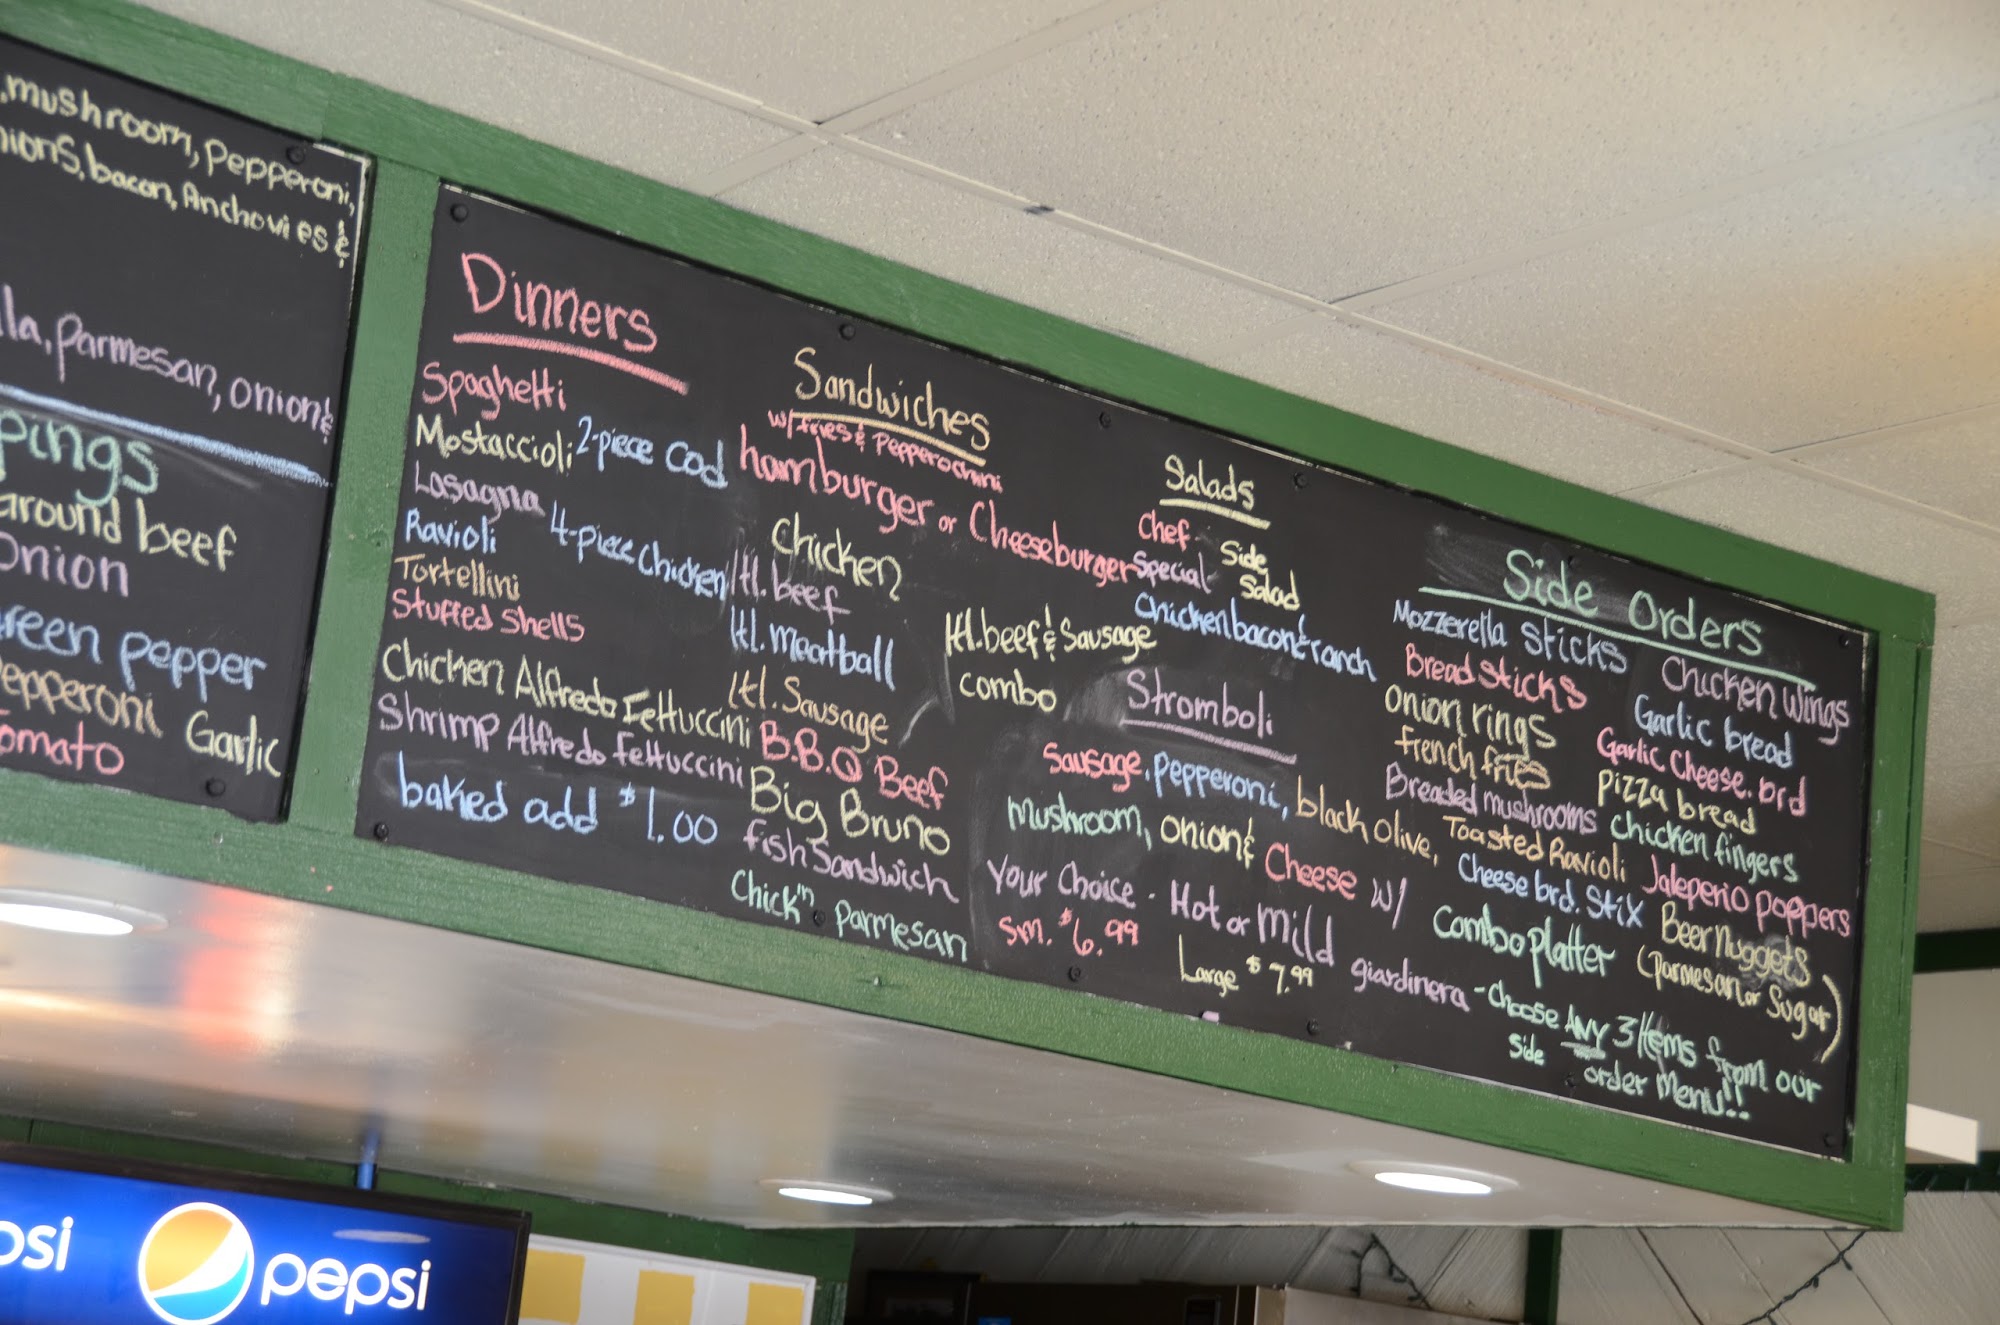 ,mushroom, pepperoni,
bacon, Anchovies &
Parmesan, onion &
around beef
onion
pepper
Garlic
Dinners
Spaghetti
Mostaccioli
Lasagna
Ravioli
Tortellini
Stuffed Shells
2-piece Cod
4-piece Chicken
Chicken Alfredo Fettuccini
Shrimp Alfredo fettuccini
baked add $1.00
Sandwiches
w/ fries & Pepperochini
hamburger or Cheeseburger
Chicken
Itl. beef
Itl. Meatball
Itl. Sausage
B.B.Q Beef
Big Bruno
fish Sandwich
Chick'n Parmesan
Itl. beef & Sausage
combo
Salads
Chef
Special
Side
Salad
Chicken bacon & ranch
Stromboli
Sausage, Pepperoni, black olive,
mushroom, onion & Cheese w/
Your Choice - Hot or Mild giardinera
Sm. $6.99
Large $7.99
Side Orders
Mozzerella Sticks
Bread Sticks
Onion rings
french fries
Breaded mushrooms
Toasted Ravioli
Cheese brd. Stix
Combo Platter
Chicken Wings
Garlic bread
Garlic Cheese. brd
Pizza bread
Chicken fingers
Jalepeno poppers
Beer Nuggets
(Parmesan or Sugar)
- Choose ANY 3 Items from our
Side order Menu!!
pepsi